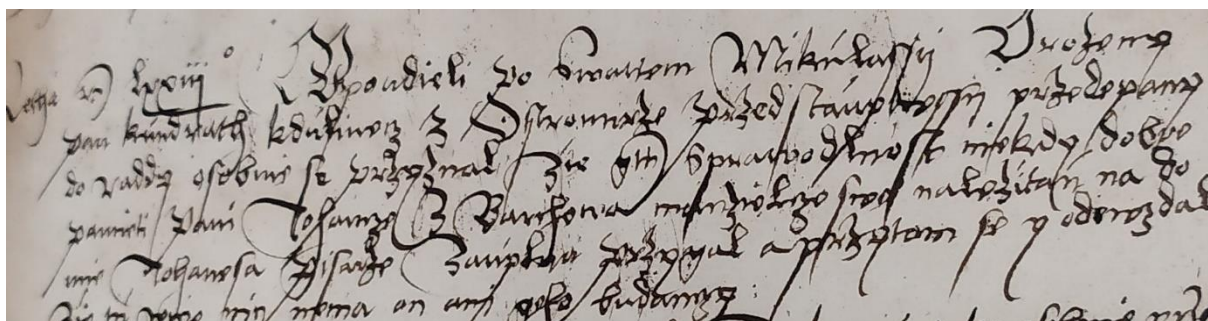 lxxiii° W pondieli po Swatem Mikulassii Urozeny
pan kundrath kdulinecz z Ostromirze przedstaupiwssii przedepany
do raddy osobnie se przyznal zie gtt sprawedlnost niekdy dobre
pamieti Pani Johanze z Barchowa manzielcze swe nalezitau na
mie Johanesa Pisarze zauplna przygal a przytom se y odewzdal
nema on ani geho budauczy